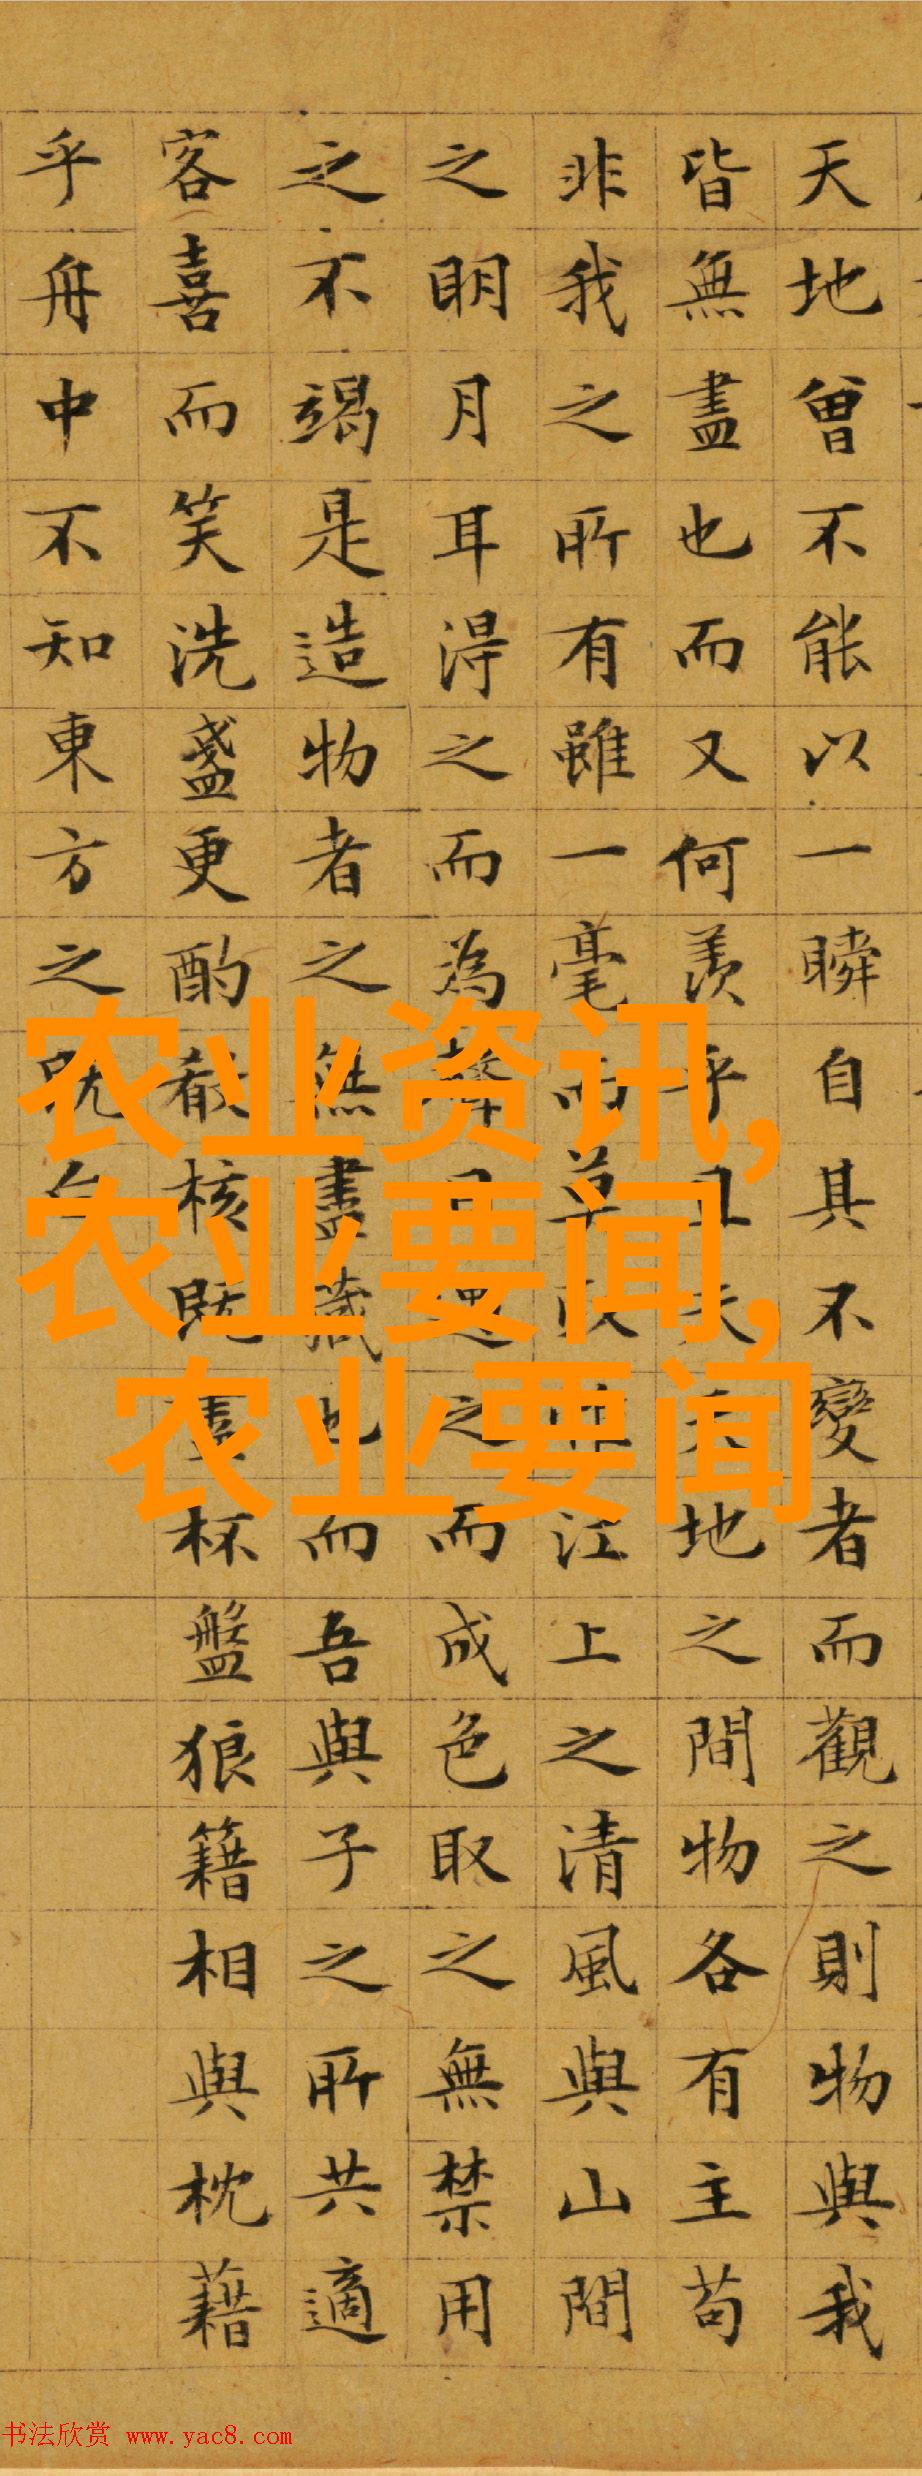 天地曾不能以一瞬自其不變者而觀之則物與我
皆無盡也而又何羨乎且夫天地之間物各有主苟
非我之所有雖一毫而莫取惟江上之清風與山間
之明月耳得之而為聲目遇之而成色取之無禁用
之不竭是造物者之無盡藏也而吾與子之所共適
客喜而笑洗盞更酌殽核既盡杯盤狼籍相與枕藉
乎舟中不知東方之既白
农业资讯,
农业要闻,
农业要闻
书法欣赏 www.yac8.com